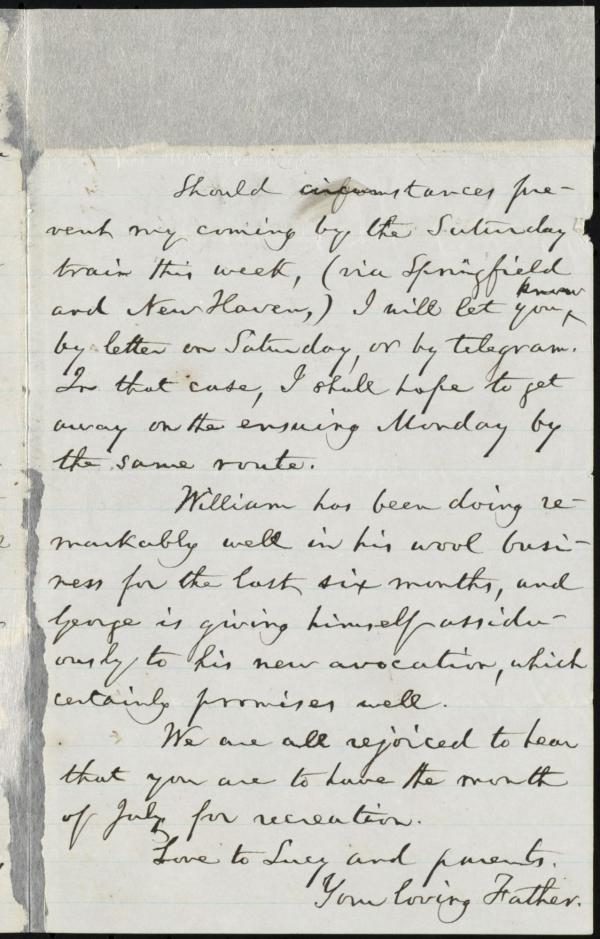 Should circumstances pre-
vent my coming by the Saturday
train this week, (via Springfield
and New Haven,) I will let you know
by letter on Saturday, or by telegram.
In that case, I shall hope to get
away on the ensuing Monday by
the same route.
William has been doing re-
markably well in his wool busi-
ness for the last six months, and
George is giving himself assidu-
ously to his new avocation, which
certainly promises well.
We are all rejoiced to hear
that you are to have the month
of July for recreation.
Love to Lucy and parents.
Your loving Father.